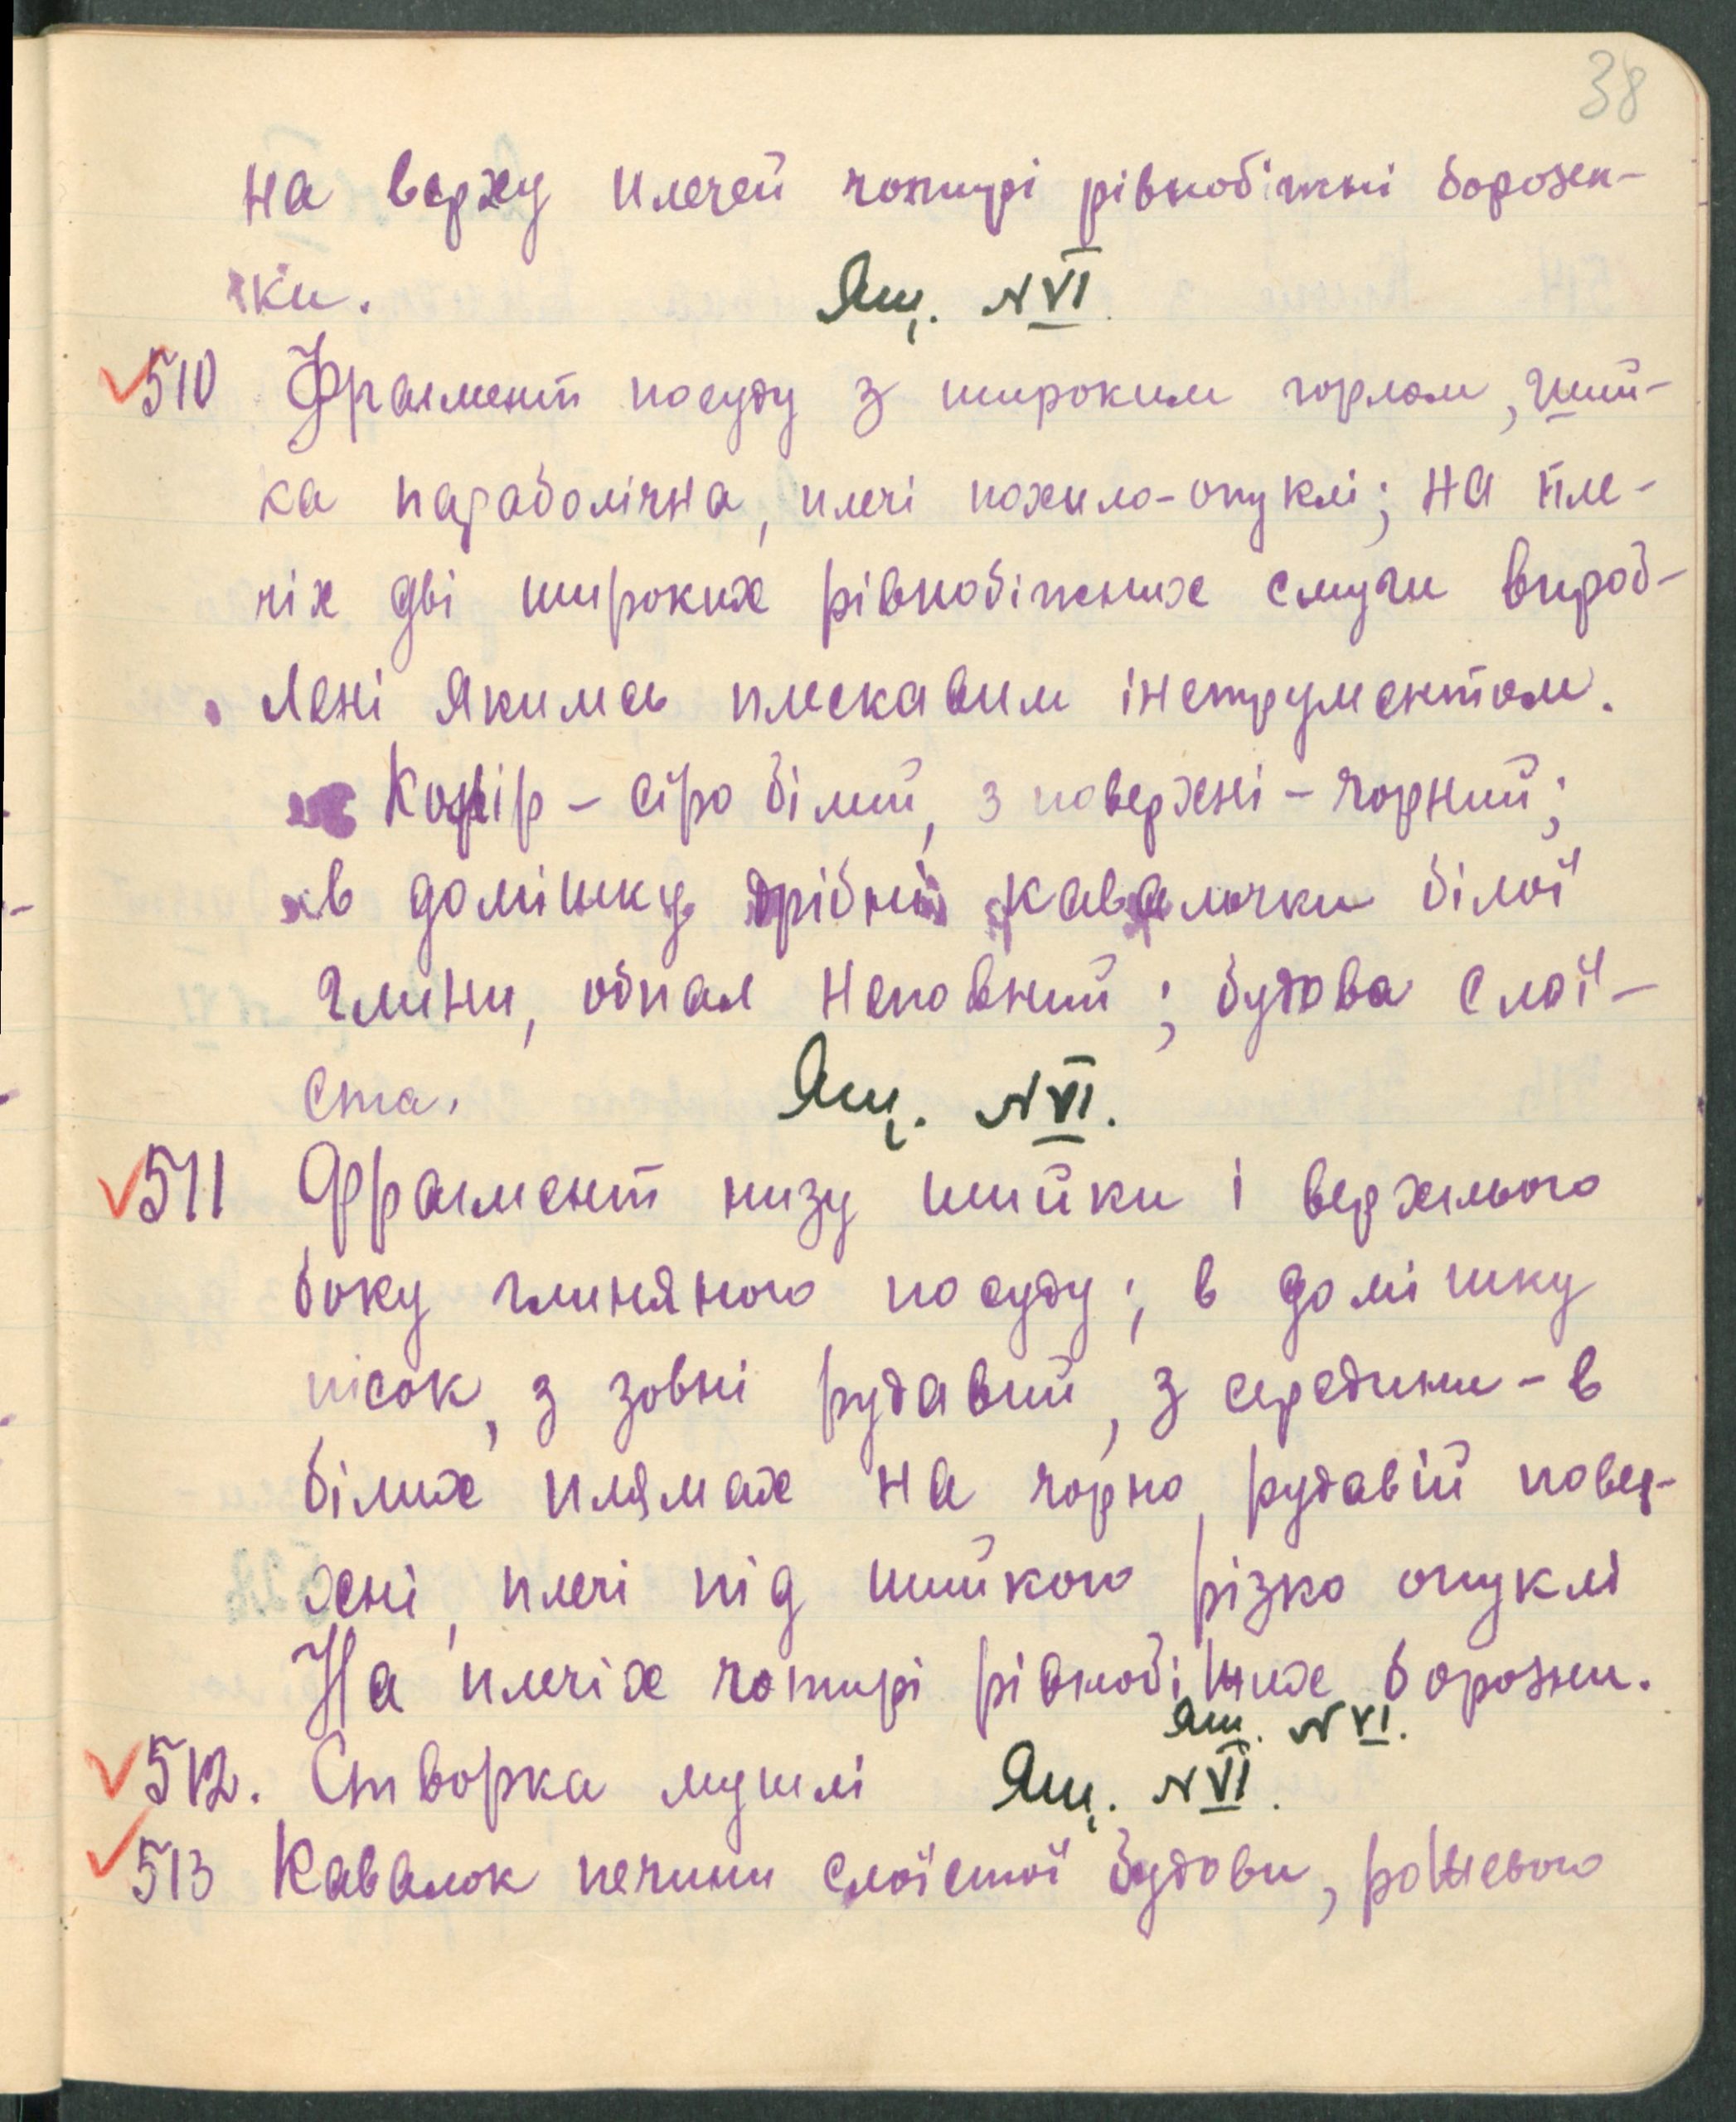 38
на верху плечей чотирі рівнобіжні борозен-
ки.
Ящ. N VI.
✓510 Фрагмент посуду з широким горлом, ший-
ка параболічна, плечі похило-опуклі; на пле-
чіх дві широких рівнобіжних смуги вироб-
лені якимсь плескавим інструментом.
Колір – сіро білий, з поверхні – чорний;
в домішку дрібні кавалочки білої
глини, обпал неповний; будова слої-
ста.
Ящ. N VI.
✓511 Фрагмент низу шийки і верхнього
боку глиняного посуду; в домішку
пісок, з зовні рудавий, з середини – в
білих плямах на чорно рудавій повер-
хені, плечі під шийкою різко опуклі
На плечіх чотирі рівнобіжних борозни.
Ящ. N VI.
✓512. Створка мушлі Ящ. N VI.
✓513 Кавалок печини слоїстої будови, рожевого